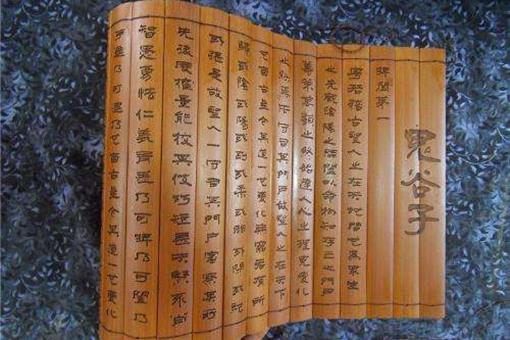 鬼谷子
捭闔第一
粵若稽古聖人之在天地間也為眾生
之先觀陰陽之開闔以命物知存亡之門戶
籌策萬類之終始達人心之理見變化
之朕焉而守司其門戶故聖人之在天下
也自古至今其道一也變化無窮各有所
歸或陰或陽或柔或剛或開或閉或弛
或張是故聖人一守司其門戶審察其所
先後度權量能校其伎巧短長夫賢不肖
智愚勇怯仁義有差乃可捭乃可闔乃
自古至今其道一也變化